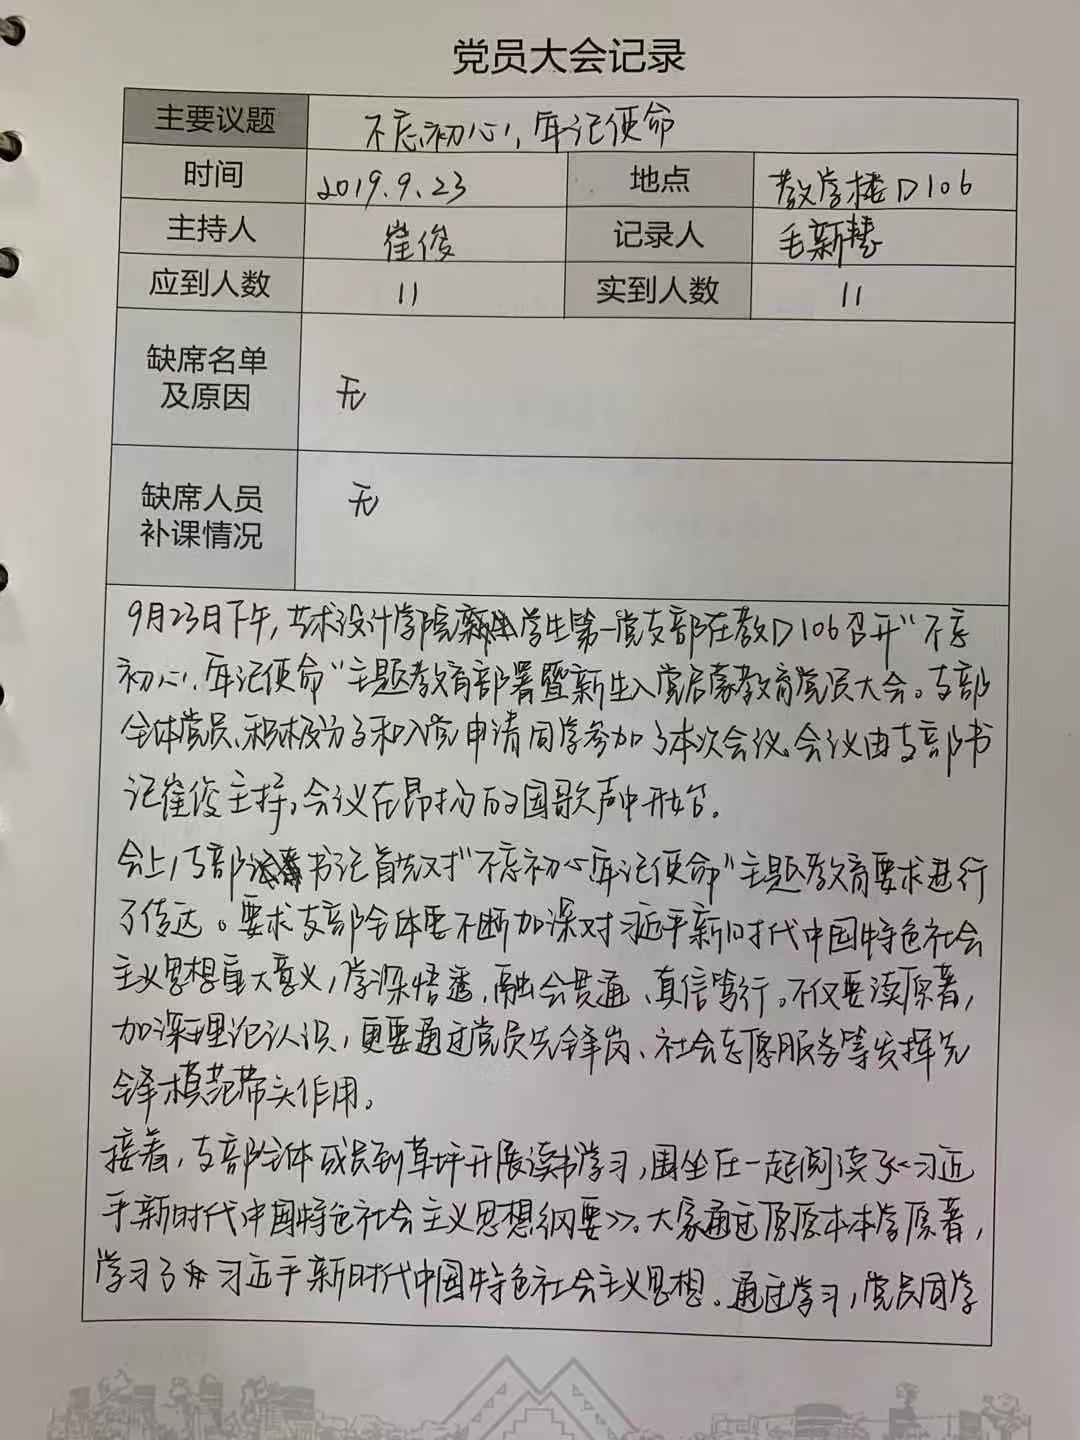 党员大会记录
主要议题 不忘初心，牢记使命
时间 2019.9.23 地点 教学楼D106
主持人 崔俊 记录人 毛新慧
应到人数 11 实到人数 11
缺席名单
及原因 无
缺席人员
补课情况 无
9月23日下午，艺术设计学院学生第一党支部在教D106召开“不忘
初心、牢记使命”主题教育部署暨新生入党启蒙教育党员大会。支部
全体党员、积极分子和入党申请同学参加了本次会议。会议由支部书
记崔俊主持，会议在昂扬的国歌声中开始。
会上，支部书记首先对“不忘初心牢记使命”主题教育要求进行
了传达。要求支部全体要不断加深对习近平新时代中国特色社会
主义思想重大意义，学深悟透、融会贯通、真信笃行。不仅要读原著，
加深理论认识，更要通过党员先锋岗、社会志愿服务等发挥先
锋模范带头作用。
接着，支部全体成员到草坪开展读书学习，围坐在一起阅读了《习近
平新时代中国特色社会主义思想纲要》。大家通过原原本本学原著，
学习了习近平新时代中国特色社会主义思想。通过学习，党员同学